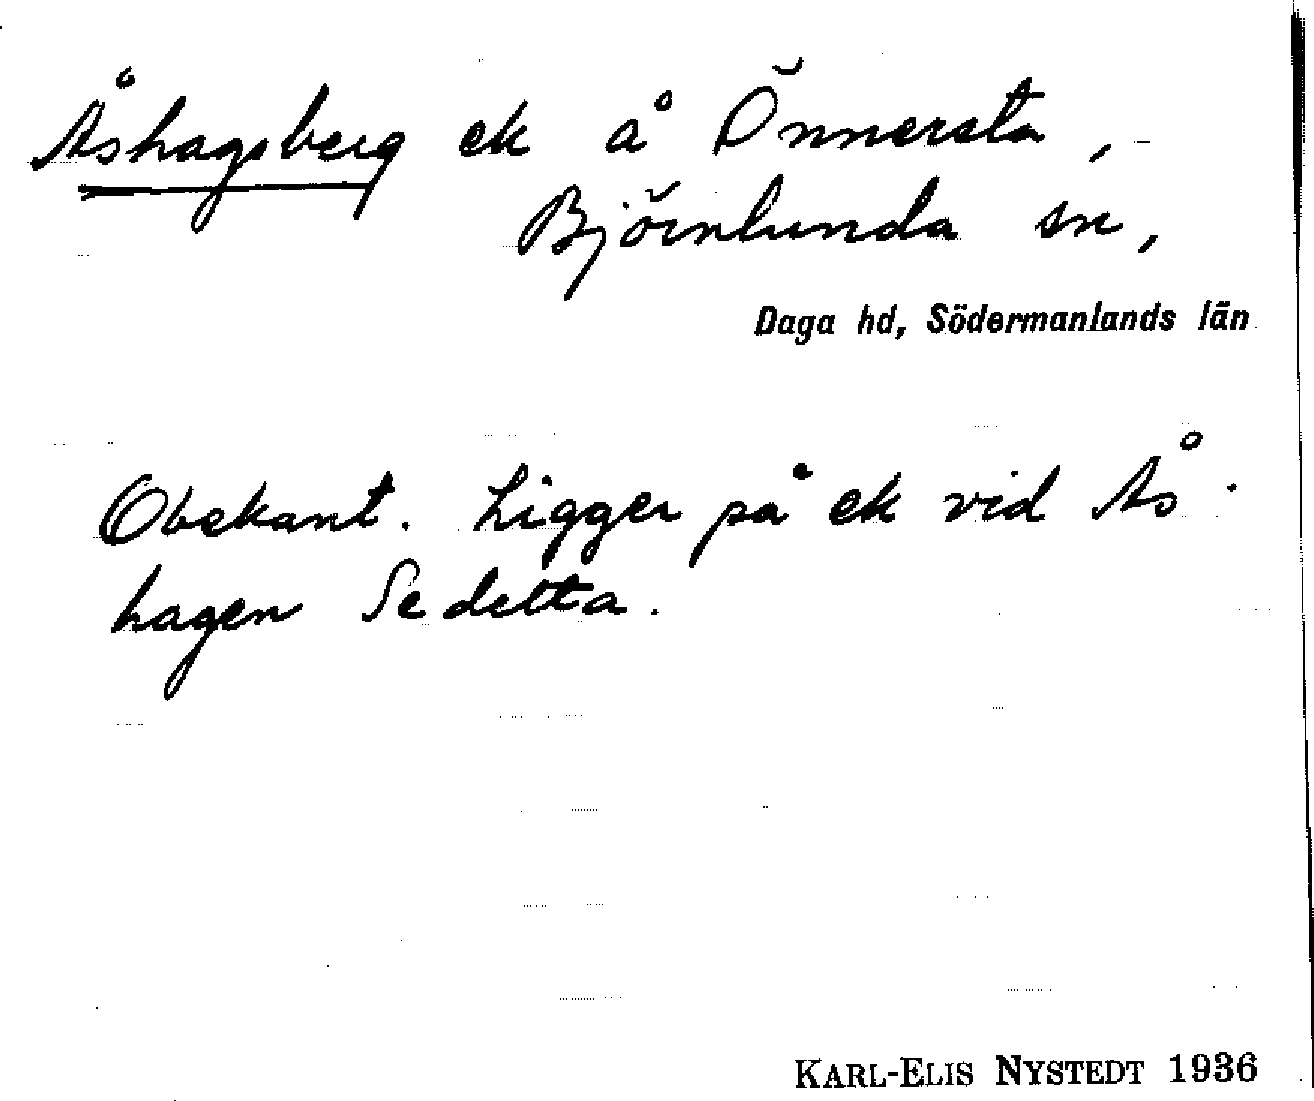 Åshagsberg ek å Önnersta,
Björnlunda sn,
Daga hd, Södermanlands län
Obekant. Ligger på ek vid Ås-
hagen Se detta.
KARL-ELIS NYSTEDT 1936